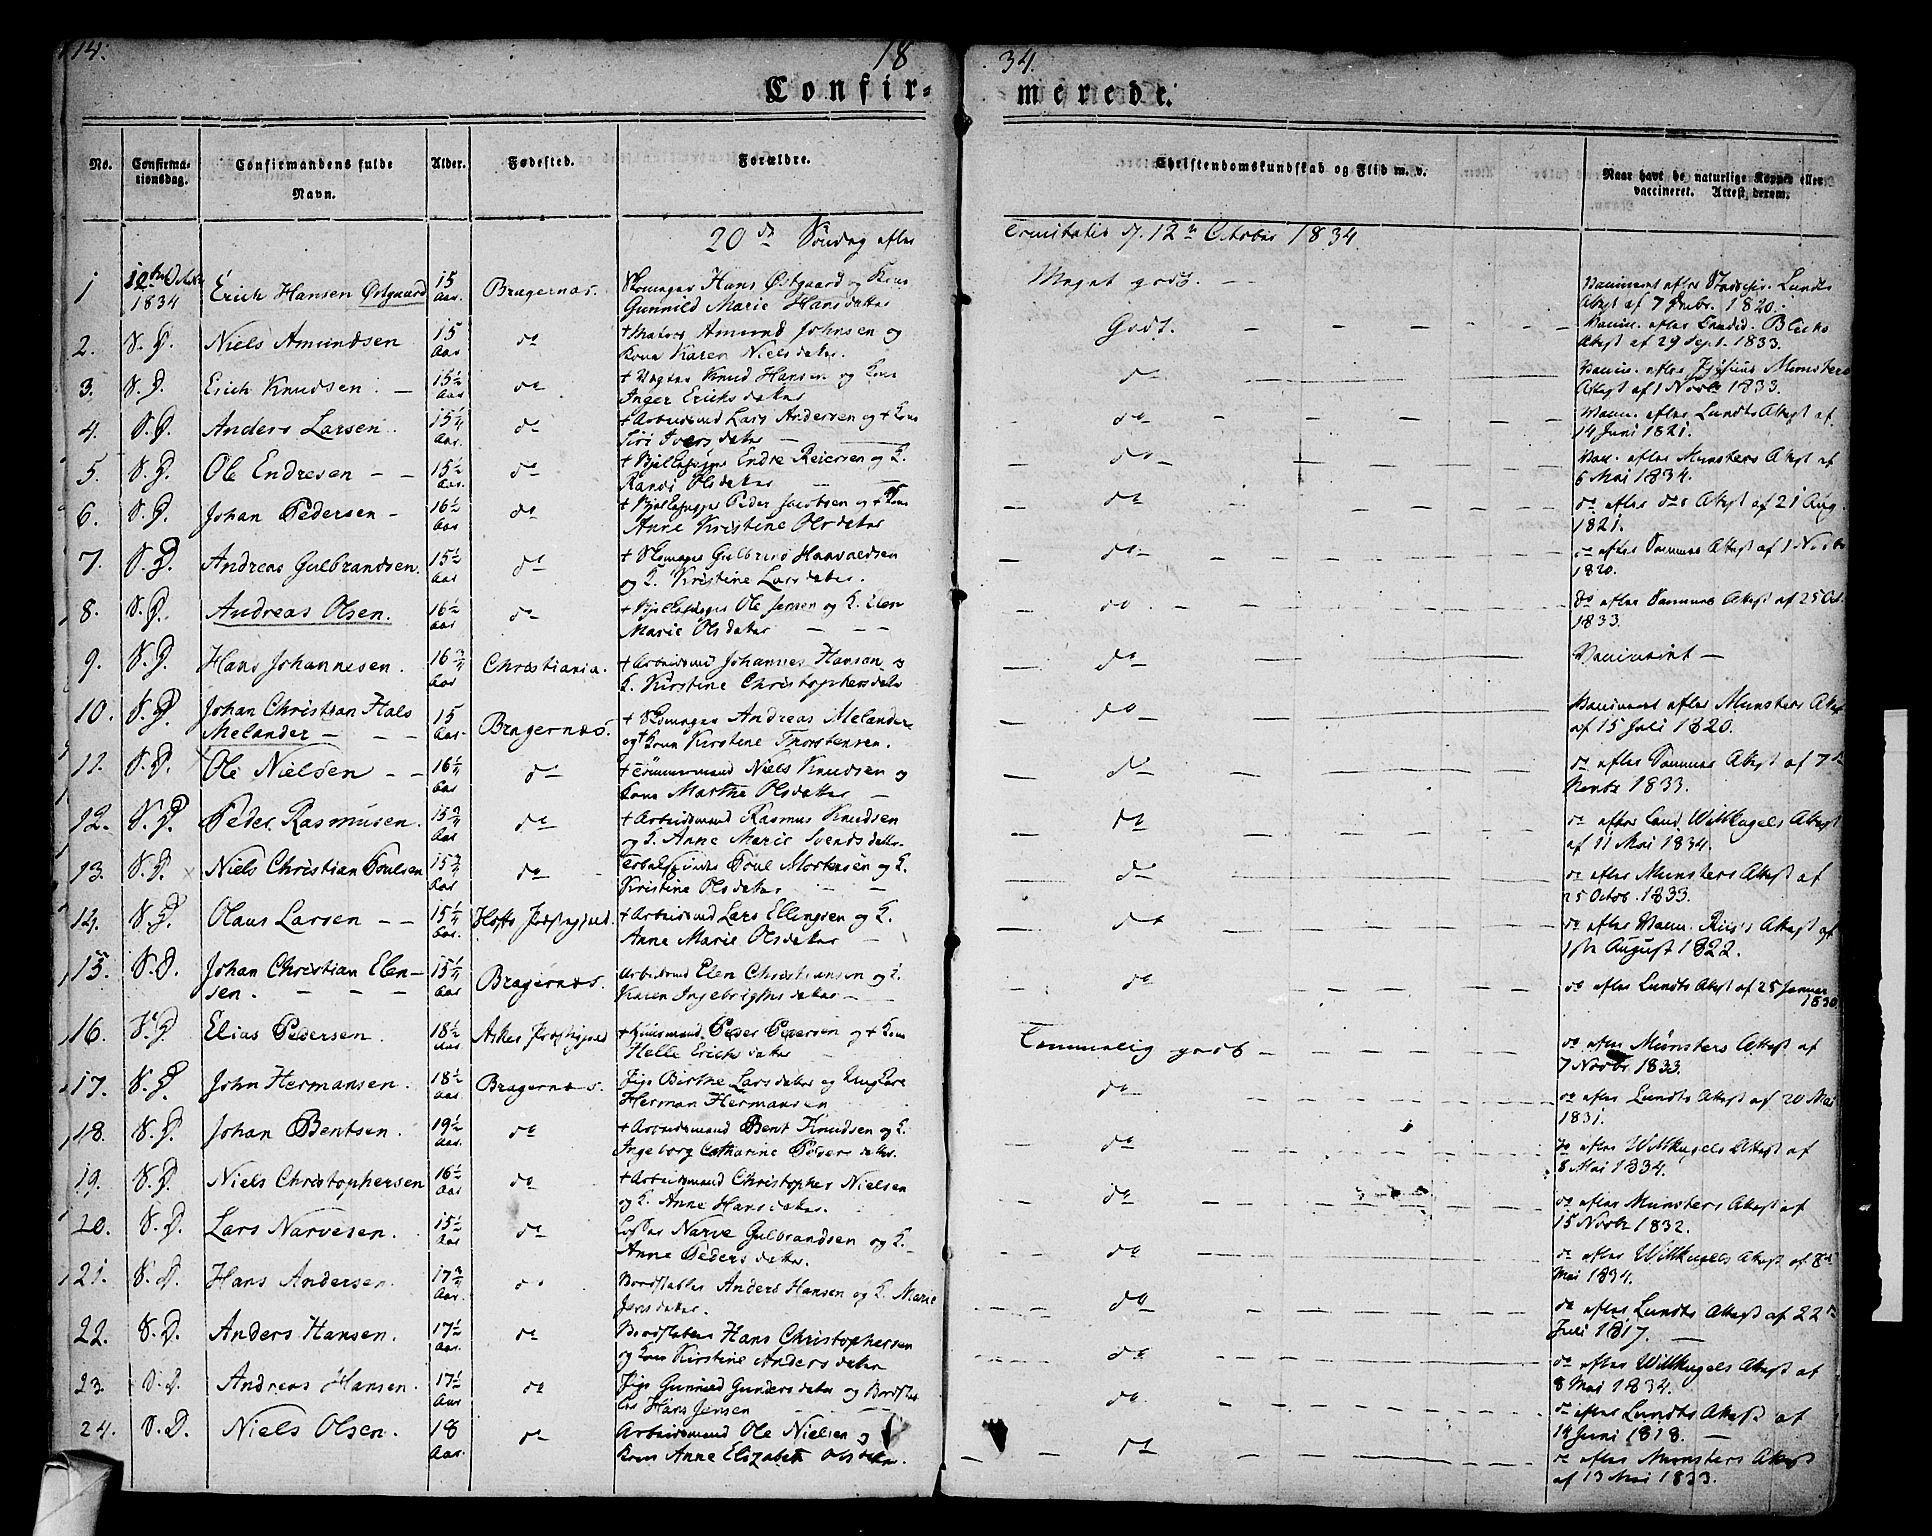 14.
18
34.
Confir-
merede.
No.
Confirma-
tionsdag.
Confirmandens fulde
Navn.
Alder.
Fødested.
Forældre.
Christendomskundskab og Flid m. v.
Naar havt de naturlige Kopper eller
vaccineret. Attest derom.
20de Søndag efter
Trinitatis d. 12te October 1834
1
1834
Erich Hansen Østgaard
15
Aar.
Bragernæs.
Skomager Hans Østgaard og Kone
Gunnild Marie Hansdatter
Meget godt. - -
Lundts
Attest af 7 Decbr. 1820.
2.
S. D.
Niels Amundsen
15
Aar
do
+ Matros Amund Johnsen og
Kone Karen Nielsdatter.
Godt.
Attest af 29 Sept. 1833.
3.
S. D.
Erich Knudsen. -
15½
Aar
do
+ Vægter Knud Hansen og Kone
Inger Eriksdatter
do
Munsters
Attest af 1 Novbr 1833.
4.
S. D.
Anders Larsen.
15¼
Aar.
do
+ Arbeidsmd Lars Andersen og + Kone
Siri Iversdatter
do
Vacc. efter Lundts Attest af
14 Juni 1821.
5.
S. D.
Ole Endresen - -
15½
Aar.
do
Endre Reiersen og K.
Randi Olsdatter
do
Vacc. efter Munsters Attest af
6 Mai 1834.
6.
S. D.
Johan Pedersen -
16½
Aar
do
Peder Jacobsen og + Kone
Anne Kristine Olsdatter
do
do efter do's Attest af 21 Aug.
1821.
7.
S. D.
Andreas Gulbrandsen.
15½
Aar
do
+ Skomager Gulbrand Haavaldsen
og K. Kristine Larsdatter.
do
do efter Sammes Attest af 1 Novbr
1820.
8.
S. D.
Andreas Olsen.
16½
Aar
do
Ole Jensen og K. Elen
Marie Olsdatter
do
do efter Sammes Attest af 25 Oct.
1833.
9.
S. D.
Hans Johannesen.
16¾
Aar
Christiania.
+ Arbeidsmd Johannes Hansen og
K. Kirstine Christophersdatter
do
Vaccineret -
10.
S. D.
Johan Christian Hals
Melander - - -
15
Aar.
Bragernæs.
+ Skomager Andreas Melander
og + Kone Kirstine Thorstensen.
do
Vaccineret efter Munsters Attest
af 15 Juli 1820.
11.
S. D.
Ole Nielsen - -
16¼
Aar
do
+ Tømmermand Niels Knudsen og
Kone Marthe Olsdatter
do
do efter Sammes Attest af 7de
Novbr 1833.
12.
S. D.
Peder Rasmusen.
15¾
Aar
do
+ Arbeidsmd Rasmus Knudsen
og K. Anne Marie Svendsdatter
do
Wittkugels Attest
af 11 Mai 1834.
13.
S. D.
Niels Christian Poulsen
15¾
Aar
do
Poul Mortensen og K.
Kristine Olsdatter
do
do efter Munsters Attest af
25 Octob. 1833.
14.
S. D.
Olaus Larsen - -
15¼
Aar.
+ Arbeidsmd Lars Ellingsen og K.
Anne Marie Olsdatter
do
August 1822.
15.
S. D.
Johan Christian Elen-
sen. - - -
15¼
Aar
Bragernæs.
Arbeidsmd Elen Christiansen og K.
Karen Ingebrigtsdatter
do
do efter Lundts Attest af 25 Januar
1830
16.
S. D.
Elias Pedersen.
18½
Aar
Asker Præstegjeld
+ Huusmand Peder Pedersen og + Kone
Helle Erichsdatter
Temmelig godt -
do efter Munsters Attest af
7 Novbr 1833.
17.
S. D.
John Hermansen.
18½
Aar.
Bragernæs.
Pige Birthe Larsdatter og Ungkarl
Herman Hermansen
do
do efter Lundts Attest af 20 Mai
1831.
18.
S. D.
Johan Bentsen.
19½
Aar.
do
+ Arbeidsmand Bent Knudsen og K.
Ingeborg Catharine Pedersdatter
do
do efter Wittkugels Attest af
8 Mai 1834.
19.
S. D.
Niels Christophersen
16½
Aar.
do
+ Arbeidsmand Christopher Nielsen
og K. Anne Hansdatter.
do
do efter Munsters Attest af
15 Novbr 1832.
20.
S. D.
Lars Narvesen.
15½
Aar
do
Narve Gulbrandsen og K.
Anne Pedersdatter.
do
do efter Wittkugels Attest af 8de
Mai 1834.
21.
S. D.
Hans Andersen.
17¾
Aar.
do
Bordstabler Anders Hansen og K. Marie
Jensdatter.
do
do efter Lundts Attest af 22de
Juli 1817.
22.
S. D.
Anders Hansen.
17½
Aar.
do
Bordstabler Hans Christophersen
og Kone Kirstine Andersdatter
do
do efter Wittkugels Attest af
8 Mai 1834.
23.
S. D.
Andreas Hansen.
17½
Aar
do
Pige Gunnild Gundersdatter og Bordstab
ler Hans Jensen
do
do efter Lundts Attest af
19 Juni 1818.
24.
S. D.
Niels Olsen.
18
Aar.
do
Arbeidsmand Ole Nielsen og
Kone Anne Elizabeth Olsdatter.
do
do efter Munsters Attest
af 13 Mai 1833.